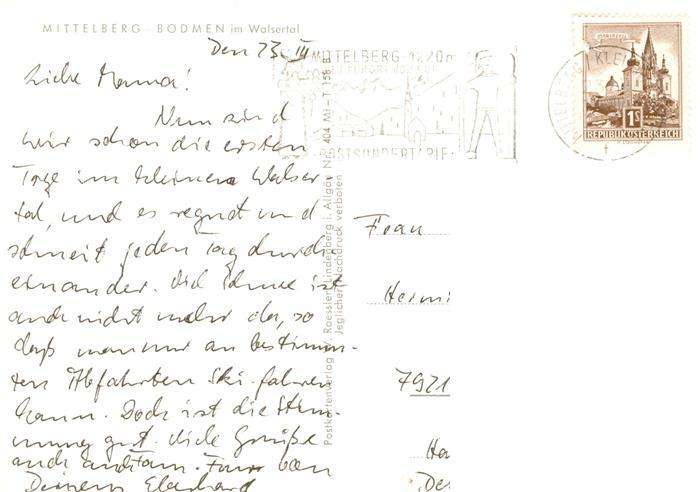 MITTELBERG - BODMEN im Walsertal
Den 23. III
Liebe Mama!
Nun sind
wir schon die ersten
Tage im kleinen Walser
tal, und es regnet und
schneit jeden Tag durch
einander. Viel Schnee ist
auch nicht mehr da, so
daß man nur an bestimm-
ten Abfahrten Ski-fahren
kann. Doch ist die Stim-
mung gut. Viele Grüße
auch an von
Deinem Eberhard
MITTELBERG 1220m
POSTSONDERTARIF
1S
REPUBLIK ÖSTERREICH
Postkartenverlag W. Roessler, Lindenberg i. Allgäu Nr. 404 MI-T 158 B
Jeglicher Nachdruck verboten
Frau
Hermi
7921